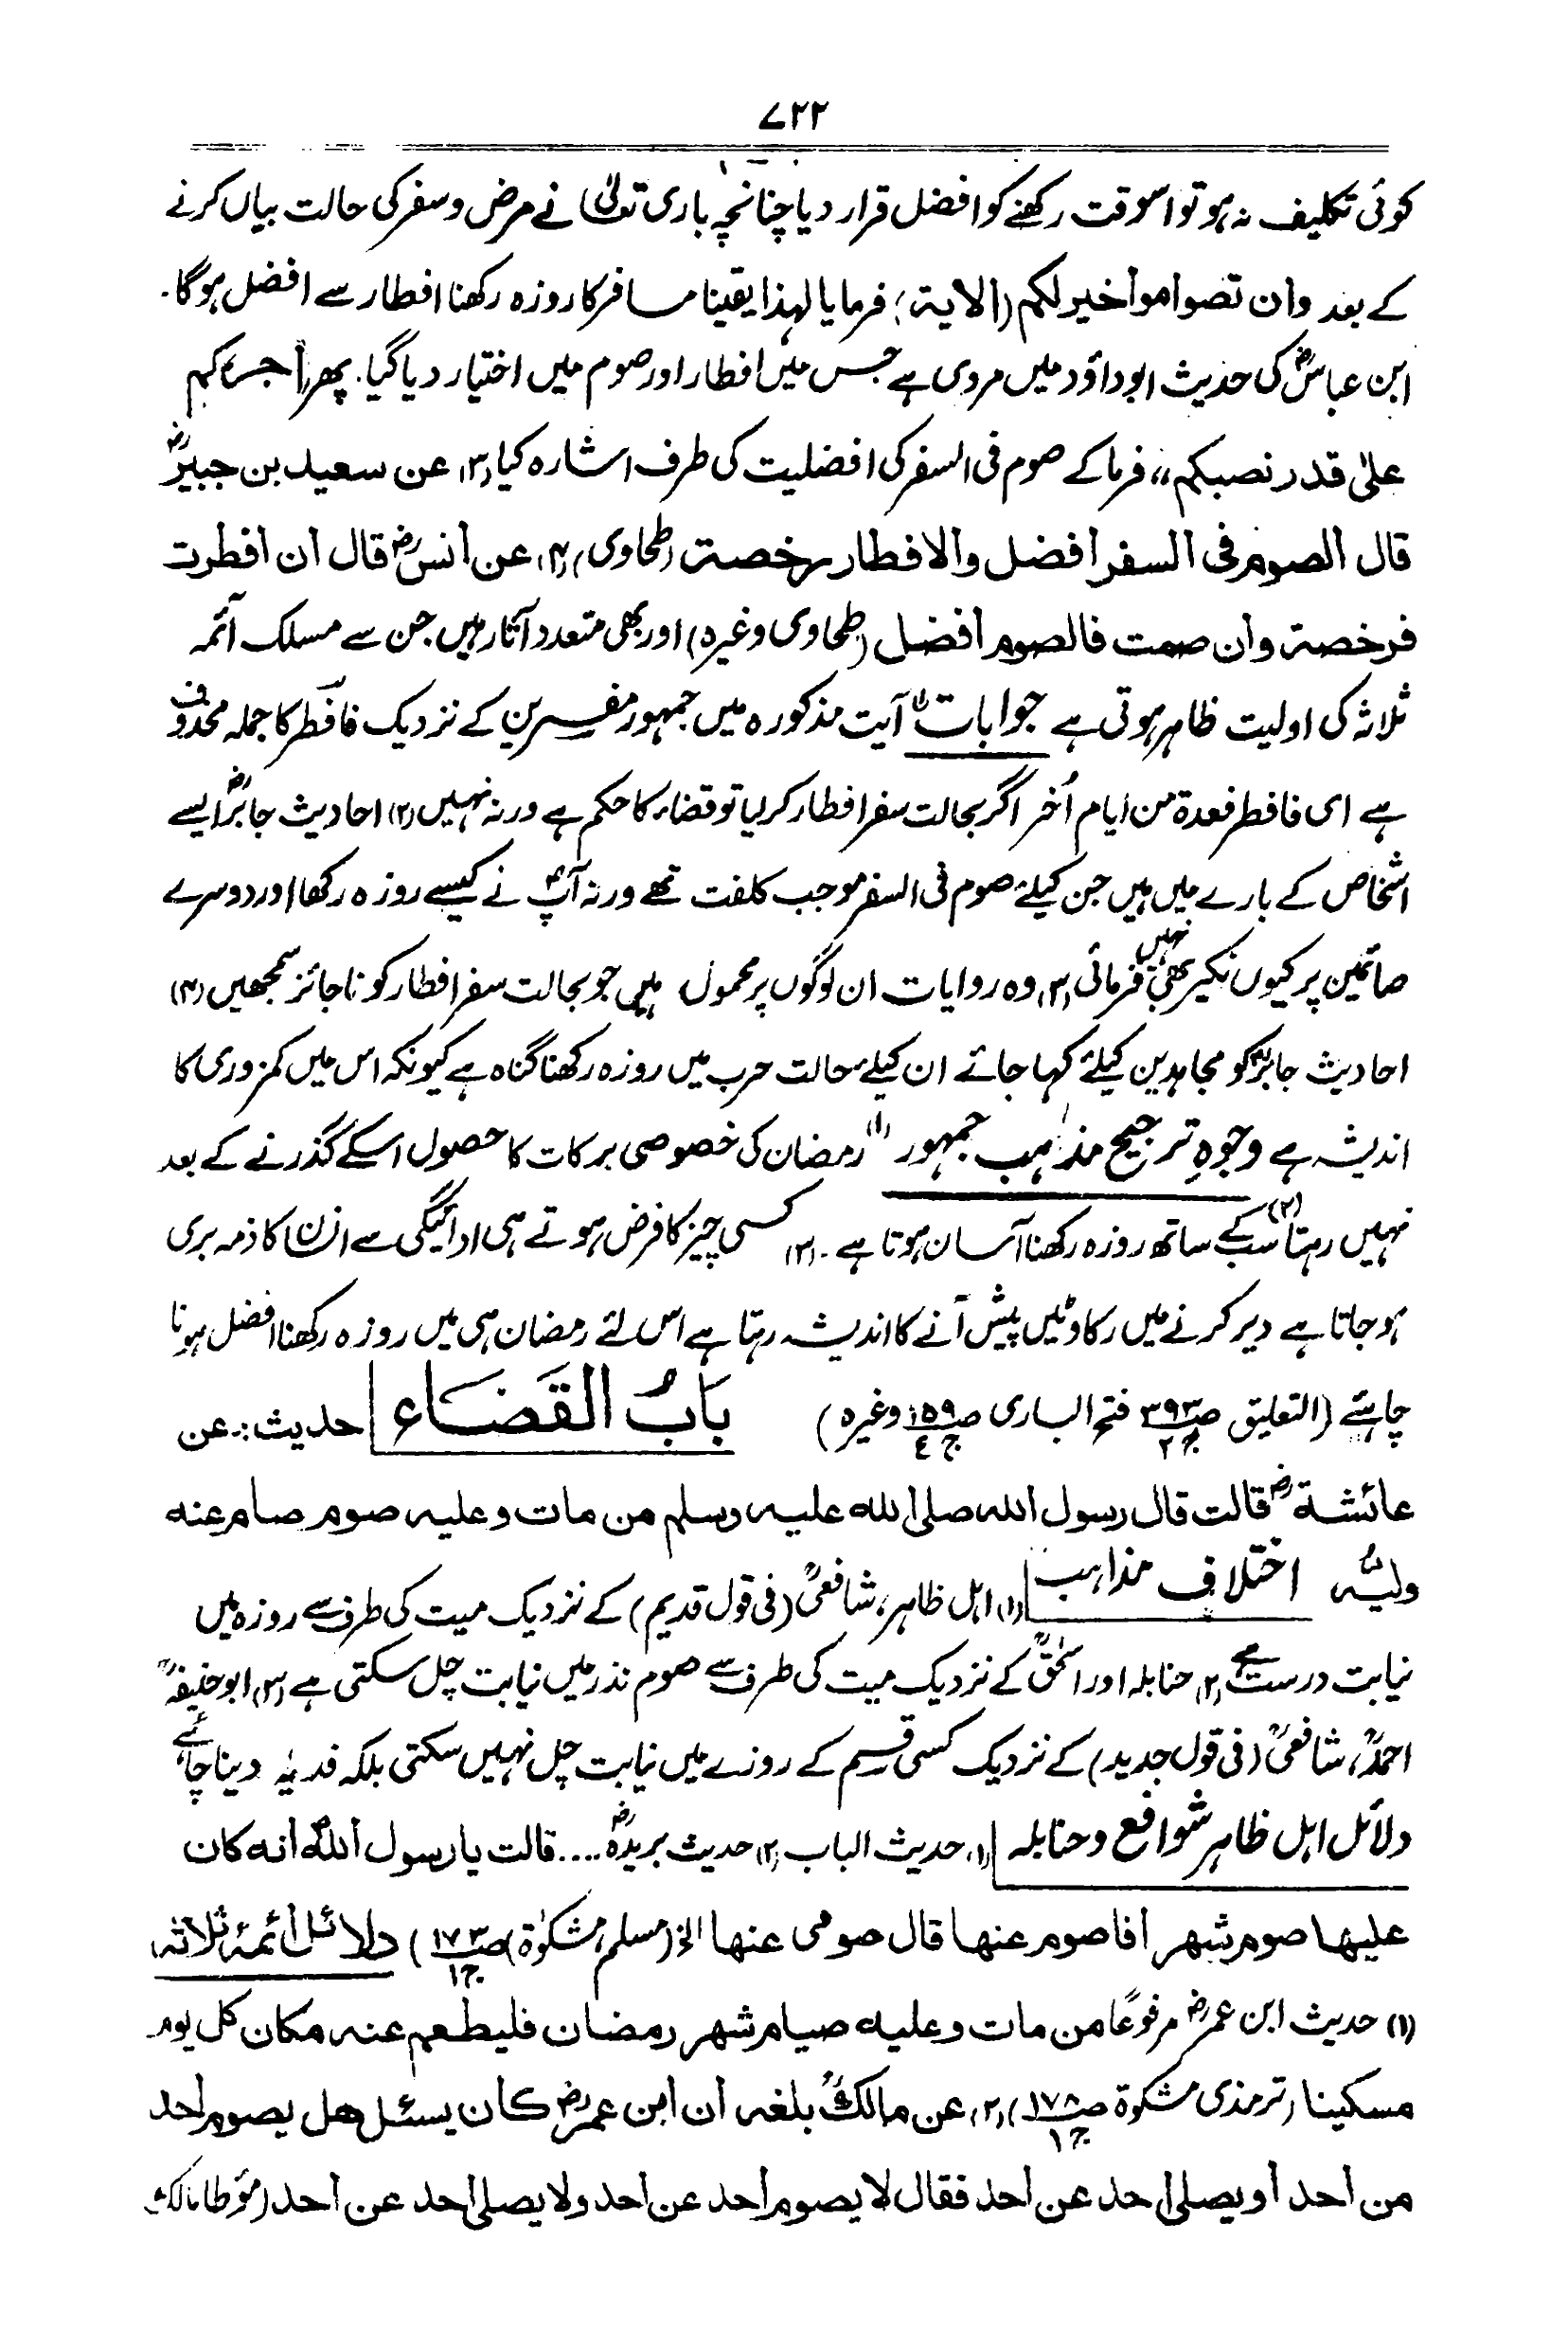 ۷۲۲
کوئی تکلیف نہ ہو تو اسوقت رکھنے کو افضل قرار دیا چنانچہ باری تعالیٰ نے مرض وسفر کی حالت بیاں کرنے
کے بعد وان تصوا موا خیر لکم (الایۃ) فرمایا لہذا یقینا مسافر کا روزہ رکھنا افطار سے افضل ہوگا ۔
ابن عباسؓ کی حدیث ابوداؤد میں مروی ہے جس میں افطار اور صوم میں اختیار دیا گیا. پھر اجرکم
علیٰ قدر نصبکم ،، فرما کے صوم فی السفر کی افضلیت کی طرف اشارہ کیا (۳) عن سعید بن جبیرؓ
قال الصوم فی السفر افضل والافطار رخصۃ (طحاوی) (۴) عن انسؓ قال ان افطرت
فرخصۃ وان صمت فالصوم افضل (طحاوی وغیرہ) اور بھی متعدد آثار ہیں جن سے مسلک آئمہ
ثلاثہ کی اولیت ظاہر ہوتی ہے جوابات (۱) آیت مذکورہ میں جمہور مفسرین کے نزدیک فافطر کا جملہ محذوف
ہے ای فافطر فعدۃ من ایام اُخر اگر بحالت سفر افطار کر لیا تو قضاء کا حکم ہے ورنہ نہیں (۲) احادیث جابرؓ ایسے
اشخاص کے بارے میں ہیں جن کیلئے صوم فی السفر موجب کلفت تھے ورنہ آپؐ نے کیسے روزہ رکھا اور دوسرے
صائمین پر کیوں نکیر بھی نہیں فرمائی (۳) وہ روایات ان لوگوں پر محمول ہیں جو بحالت سفر افطار کو ناجائز سمجھیں (۴)
احادیث جابرؓ کو مجاہدین کیلئے کہا جائے ان کیلئے حالت حرب میں روزہ رکھنا گناہ ہے کیونکہ اس میں کمزوری کا
اندیشہ ہے وجوہِ ترجیح مذہب جمہور (۱) رمضان کی خصوصی برکات کا حصول اسکے گذرنے کے بعد
نہیں رہتا (۲) سب کے ساتھ روزہ رکھنا آسان ہوتا ہے ۔ (۳) کسی چیز کا فرض ہوتے ہی ادائیگی سے انسان کا ذمہ بری
ہوجاتا ہے دیر کرنے میں رکاوٹیں پیش آنے کا اندیشہ رہتا ہے اس لئے رمضان ہی میں روزہ رکھنا افضل ہونا
چاہئے (التعلیق ص۳۹۳ ج۲ فتح الباری ص۱۵۹ ج٤ وغیرہ) بَابُ القَضَاء حدیث:۔ عن
عائشۃؓ قالت قال رسول اللہ صلی اللہ علیہ وسلم من مات وعلیہ صوم صام عنہ
ولیُّہ اختلاف مذاہب (۱) اہل ظاہر، شافعیؒ (فی قول قدیم) کے نزدیک میت کی طرف سے روزہ میں
نیابت درست ہے (۲) حنابلہ اور اسحٰقؒ کے نزدیک میت کی طرف سے صوم نذر میں نیابت چل سکتی ہے (۳) ابوحنیفہؒ
احمدؒ، شافعیؒ (فی قول جدید) کے نزدیک کسی قسم کے روزے میں نیابت چل نہیں سکتی بلکہ فدیہ دینا چاہئے
دلائل اہل ظاہر شوافع وحنابلہ (۱) حدیث الباب (۲) حدیث بریدہؓ .... قالت یا رسول اللہؐ انہ کان
علیہا صوم شہر افاصوم عنہا قال صومی عنہا الخ (مسلم، مشکوٰۃ) ص۱۷۳ ج۱) دلائل ائمۂ ثلاثہ
(۱) حدیث ابن عمرؓ مرفوعًا من مات وعلیہ صیام شہر رمضان فلیطعم عنہ مکان کل یوم
مسکینا (ترمذی مشکوۃ ص۱۷۸ ج۱) (۲) عن مالکؒ بلغہ ان ابن عمرؓ کان یسئل ھل یصوم احد
من احد او یصلی احد عن احد فقال لا یصوم احد عن احد ولا یصلی احد عن احد (مؤطا مالک